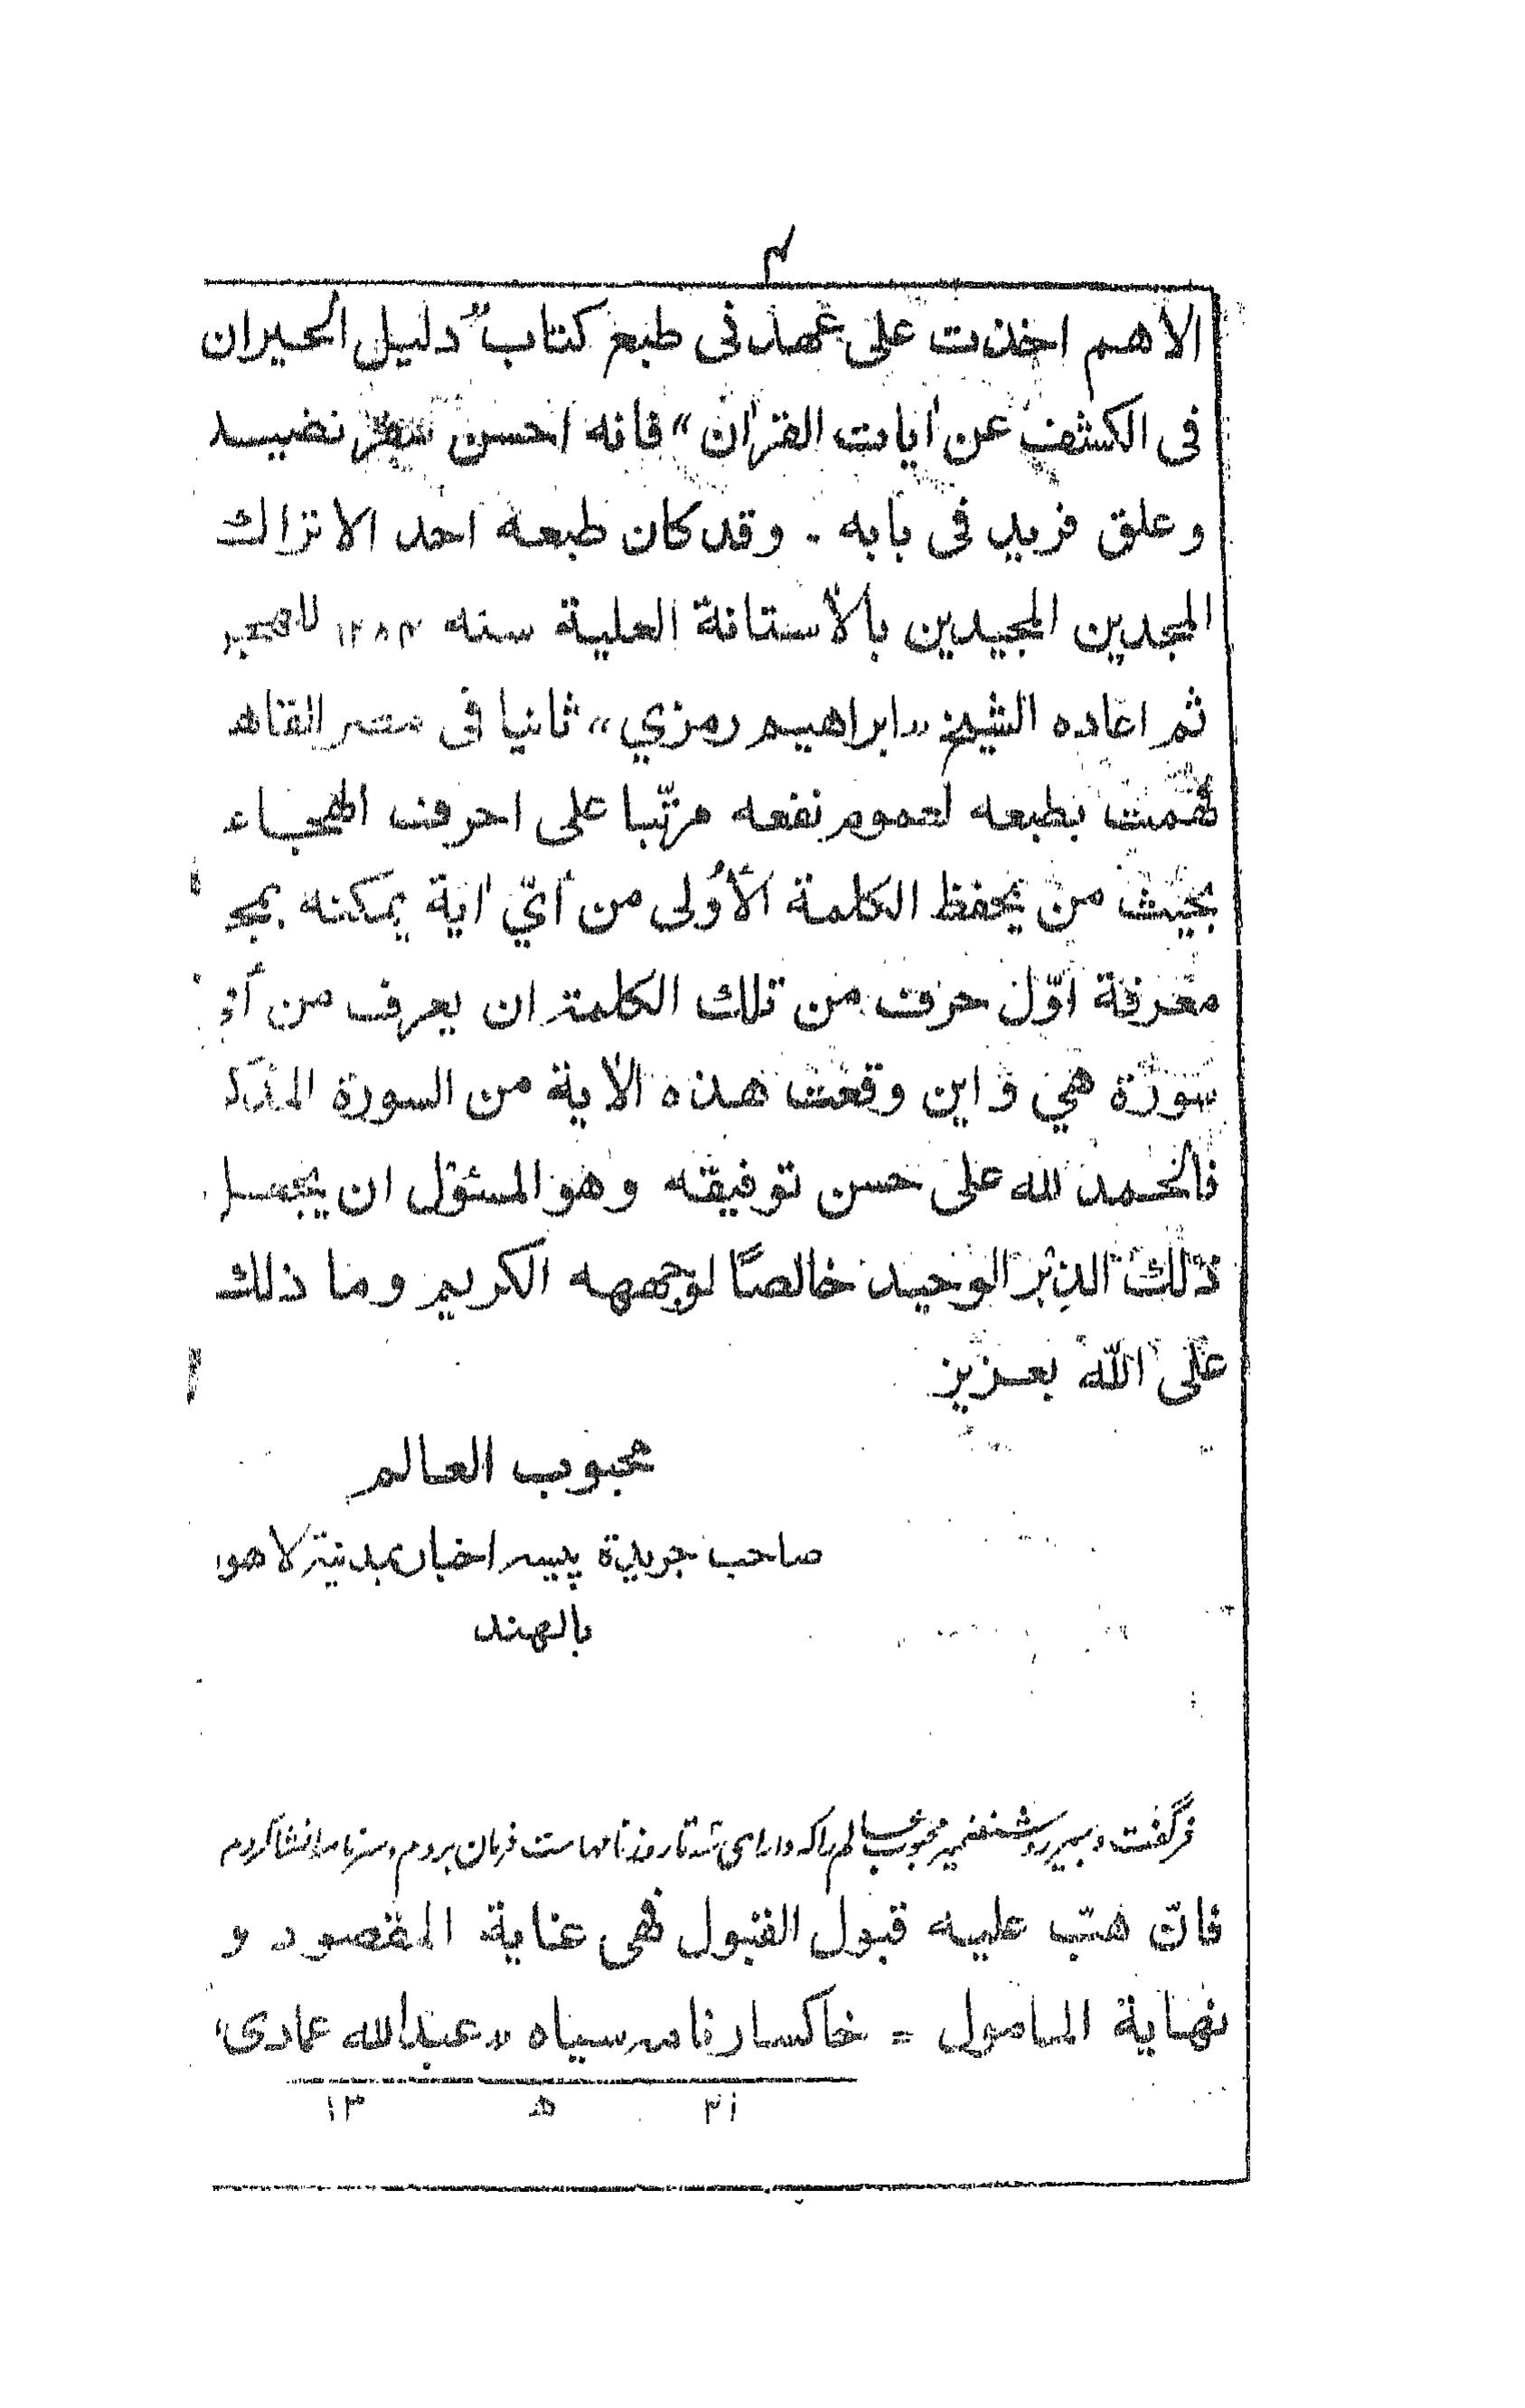 ۴
الاهم اخذت على عهد فى طبع كتاب "دليل الحيران
فى الكشف عن اٰيات القراٰن" فانه احسن سطر نضيد
وعلق فريد فى بابه . وقد كان طبعه احد الاتراك
المجدين المجيدين بالأستانة العلية سنه ۱۲۸۴ للهجر
ثم اعاده الشيخ "ابراهيم رمزي" ثانيا فى مصر القاه
فقمت بطبعه لعموم نفعه مرتّبا على احرف الهجاء
بحيث من يحفظ الكلمة الأولى من أيّ اٰية يمكنه بمجر
معرفة اوّل حرف من تلك الكلمة ان يعرف من أ
سورة هي واين وقعت هذه الاٰية من السورة المذك
فالحمد لله على حسن توفيقه وهو المسئول ان يجعل
ذلك البر الوحيد خالصًا لوجهه الكريم وما ذلك
على اللّه بعزيز
محبوب العالم
صاحب جريدة پيسه اخبار بمدينة لاهو
بالهند
گفت دبير روشنضمير محبوب عالم را كه داراى روزنامهاست فرمان بردم
فانّ هبّ عليه قبول القبول فهى غاية المقصود و
نهاية المامول = خاكسار نامه سياه "عبدالله عمادى"
۲۱ ه ۱۳